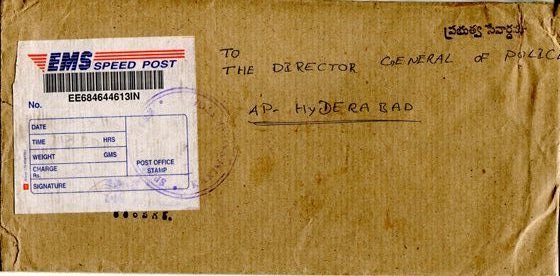 ప్రభుత్వ సేవార్థము
TO
THE DIRECTOR GENERAL OF POLICE
AP- HYDERABAD
EMS SPEED POST
EE684644613IN
No.
DATE
TIME HRS
WEIGHT GMS
CHARGE
Rs.
SIGNATURE
POST OFFICE
STAMP
కరీంనగర్.